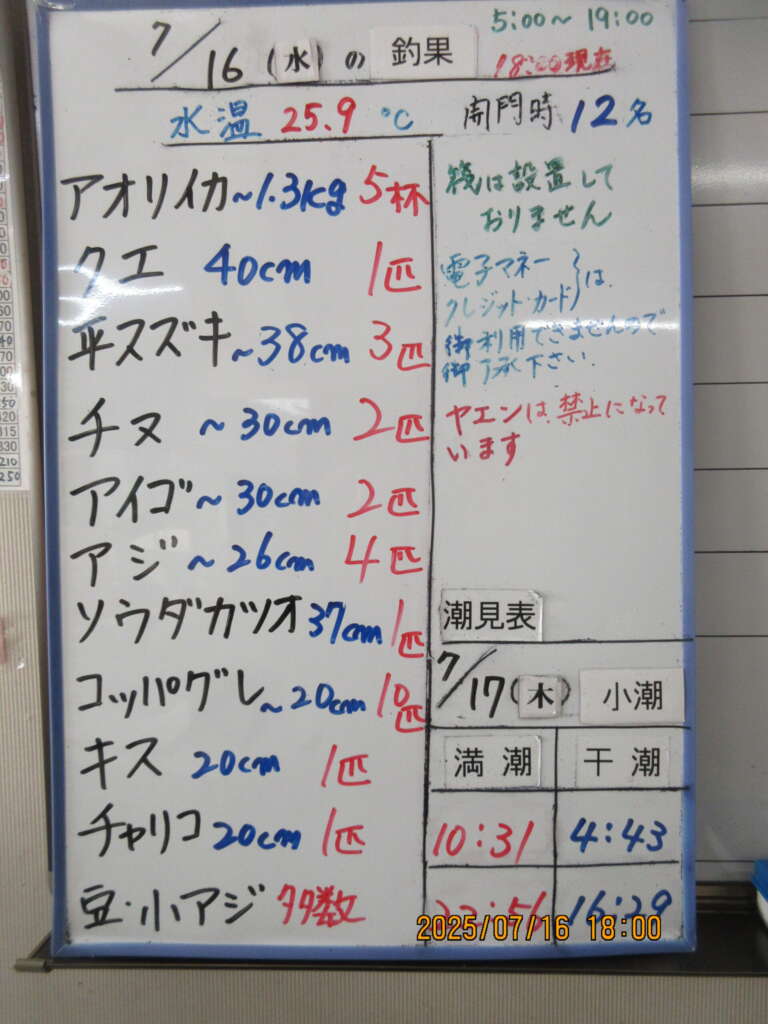 5:00〜19:00
7/16(水)の 釣果 18:00現在
水温 25.9℃ 開門時 12名
アオリイカ〜1.3kg 5杯
クエ 40cm 1匹
平スズキ〜38cm 3匹
チヌ 〜30cm 2匹
アイゴ〜30cm 2匹
アジ〜26cm 4匹
ソウダガツオ37cm 1匹
コッパグレ〜20cm 10匹
キス 20cm 1匹
チャリコ20cm 1匹
豆・小アジ 多数
筏は設置して
おりません
電子マネー
クレジット・カード}は
御利用できませんので
御了承下さい.
ヤエンは禁止になって
います
潮見表
7/17(木) 小潮
満潮 干潮
10:31 4:43
22:56 16:29
2025/07/16 18:00